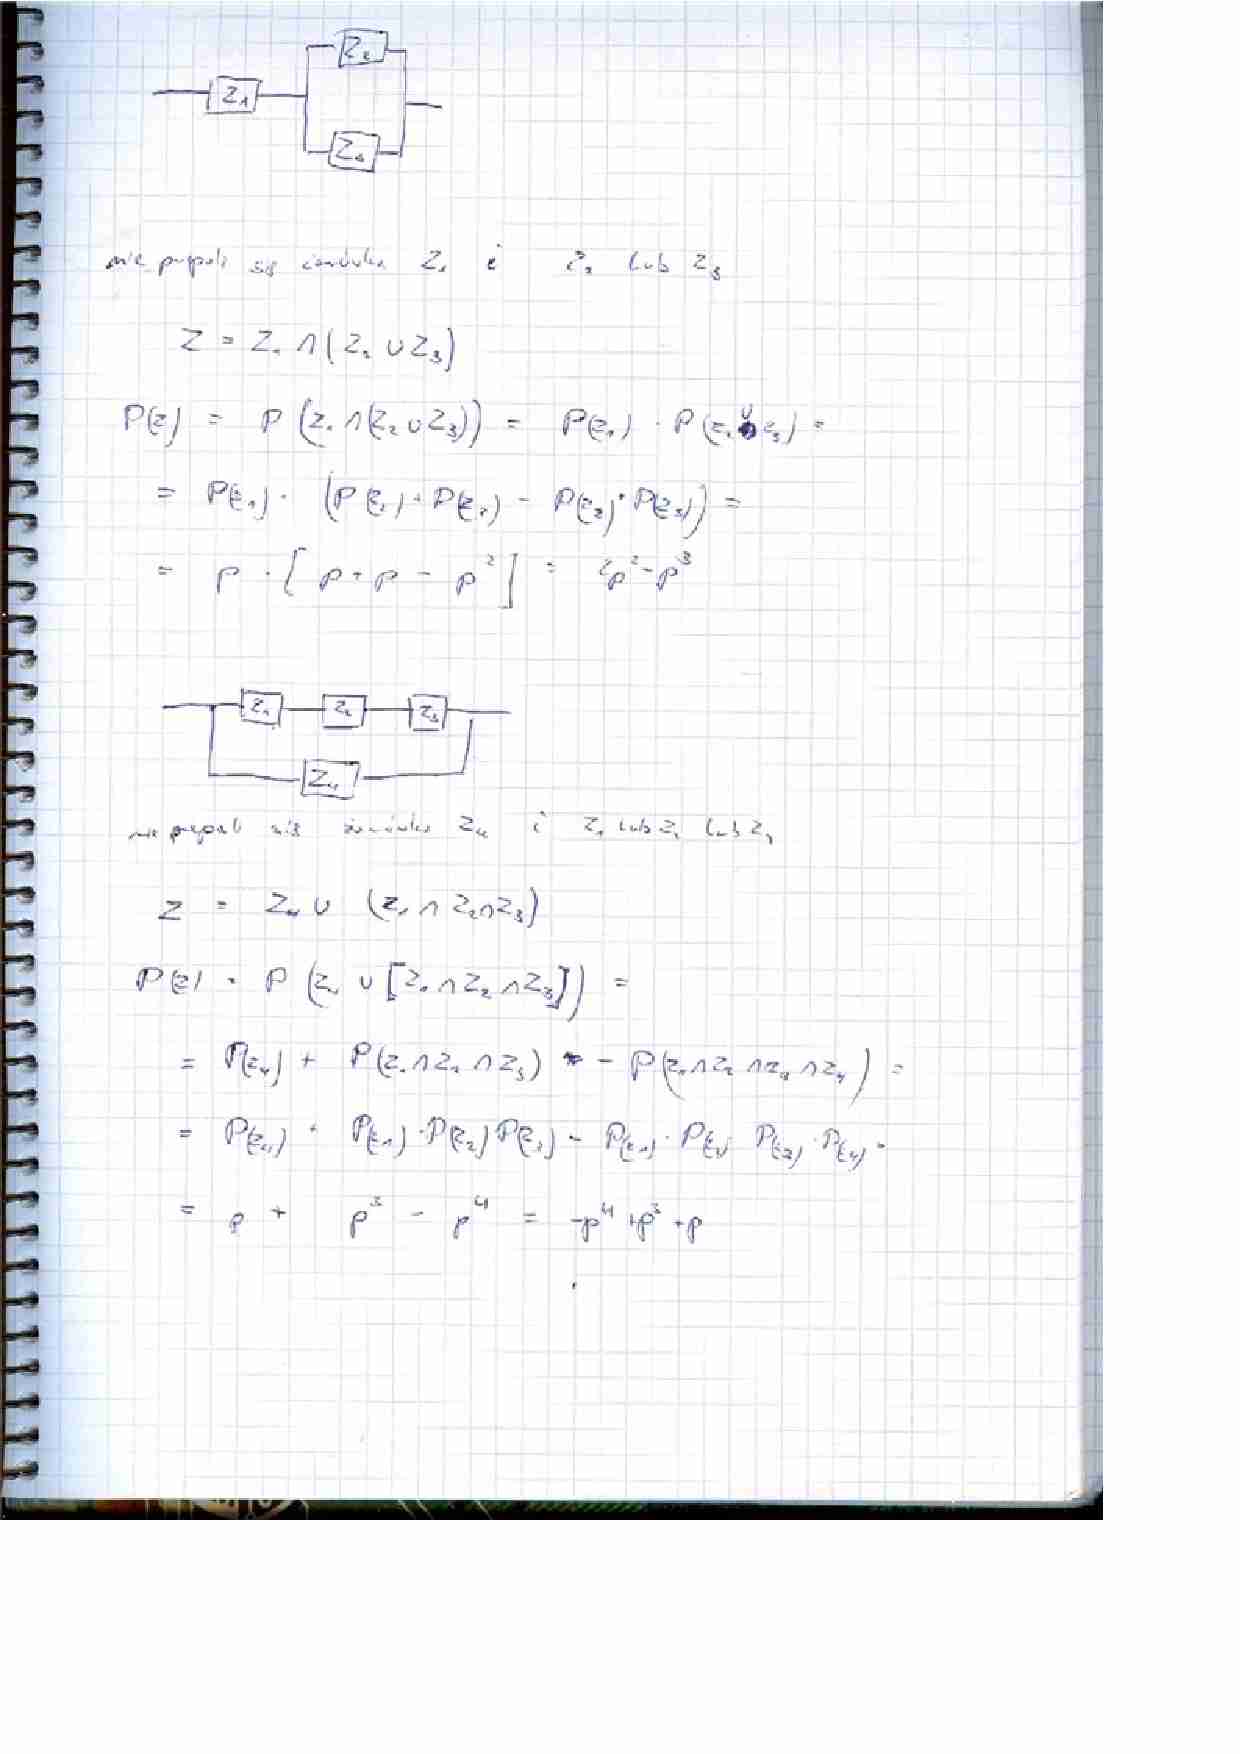 Z₁
Z₂
Z₃
nie przepali się żarówka Z₁ i Z₂ lub Z₃
Z = Z₁ ∩ (Z₂ ∪ Z₃)
P(Z) = P(Z₁ ∩ (Z₂ ∪ Z₃)) = P(Z₁) · P(Z₂ ∪ Z₃) =
= P(Z₁) · (P(Z₂) + P(Z₃) - P(Z₂) · P(Z₃)) =
= p · [p + p - p²] = 2p² - p³
Z₁ Z₂ Z₃
Z₄
nie przepali się żarówka Z₄ i Z₁ lub Z₂ lub Z₃
Z = Z₄ ∪ (Z₁ ∩ Z₂ ∩ Z₃)
P(Z) = P(Z₄ ∪ [Z₁ ∩ Z₂ ∩ Z₃]) =
= P(Z₄) + P(Z₁ ∩ Z₂ ∩ Z₃) - P(Z₁ ∩ Z₂ ∩ Z₃ ∩ Z₄) =
= P(Z₄) + P(Z₁) · P(Z₂) · P(Z₃) - P(Z₁) · P(Z₂) · P(Z₃) · P(Z₄) =
= p + p³ - p⁴ = -p⁴ + p³ + p